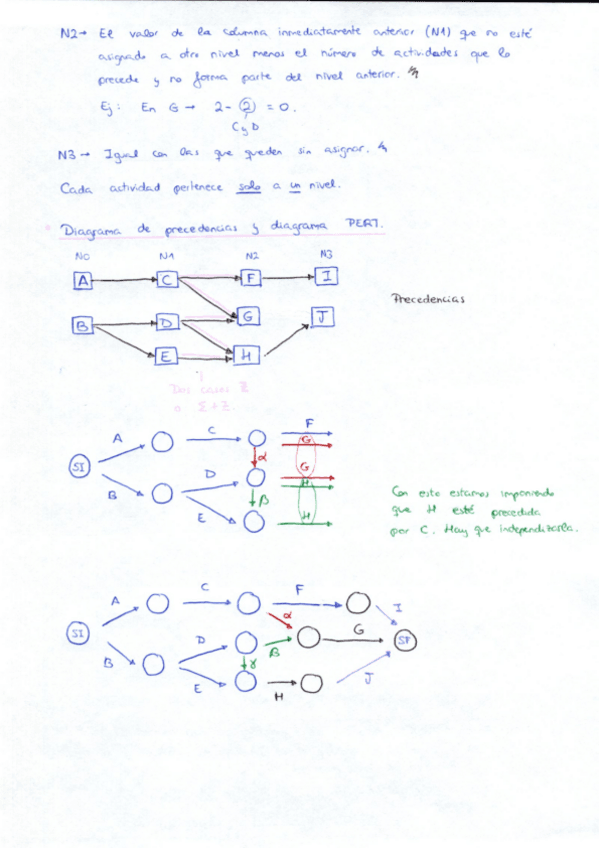 N2→ El valor de la columna inmediatamente anterior (N1) que no esté
asignado a otro nivel menos el número de actividades que lo
precede y no forma parte del nivel anterior.
Ej: En G → 2 - 2 = 0.
C y D
N3 → Igual con las que queden sin asignar.
Cada actividad pertenece solo a un nivel.
Diagrama de precedencias y diagrama PERT.
N0 N1 N2 N3
A C F I
Precedencias
B D G J
E H
Dos casos Z
o Σ+Z.
F
A C G
α
SI G
D H
B β
E H
Con esto estamos imponiendo
que H esté precedida
por C. Hay que independizarla.
A C F I
α
SI G SF
D β
B γ J
E H